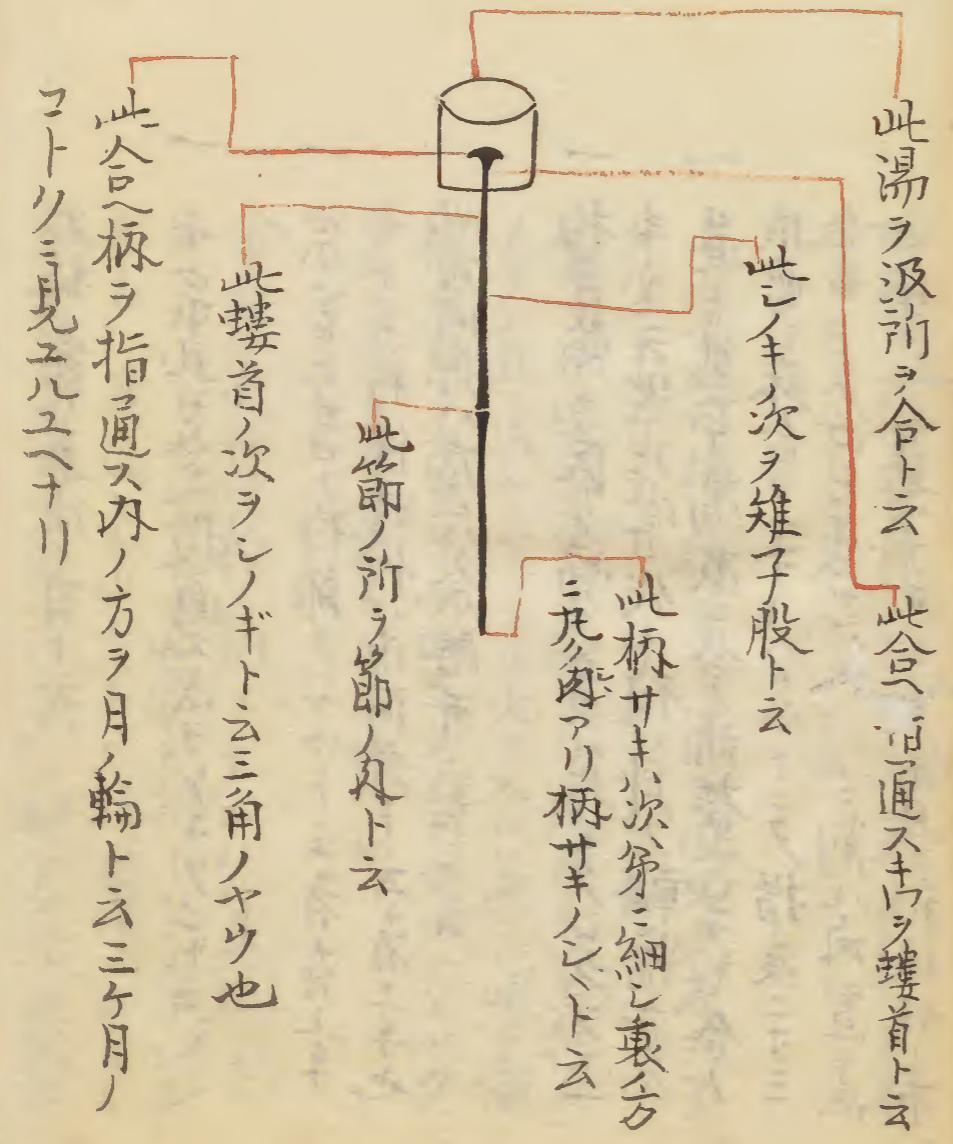 此湯ヲ汲所ヲ合ト云
此合ヘ 指通スキワヲ螻首ト云
此シノキノ次ヲ雉子股ト云
此柄サキハ次第ニ細シ裏ノ方
ニ九ノ肉アリ柄サキノシヾト云
此節ノ所ヲ節ノ肉ト云
此螻首ノ次ヲシノギト云三角ノヤウ也
此合ヘ柄ヲ指通ス内ノ方ヲ月ノ輪ト云三ケ月ノ
コトクニ見ユルユヘナリ